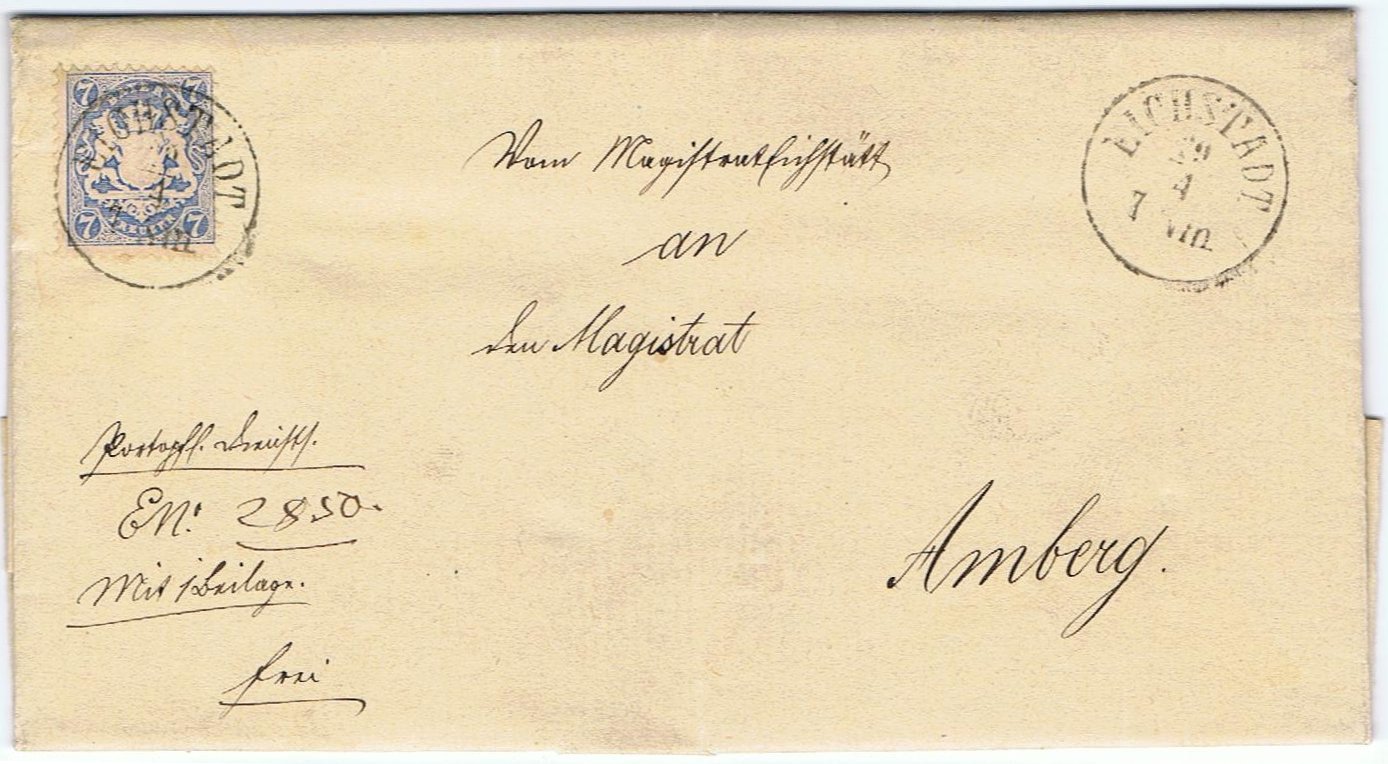 7 7
7 7
KREUZER
EICHSTADT
Vom Magistrat Eichstätt
an
den Magistrat
Portopfl. Diensts.
EN: 2850.
Mit 1 Beilage.
frei
Amberg.
EICHSTADT
29
7 VIII